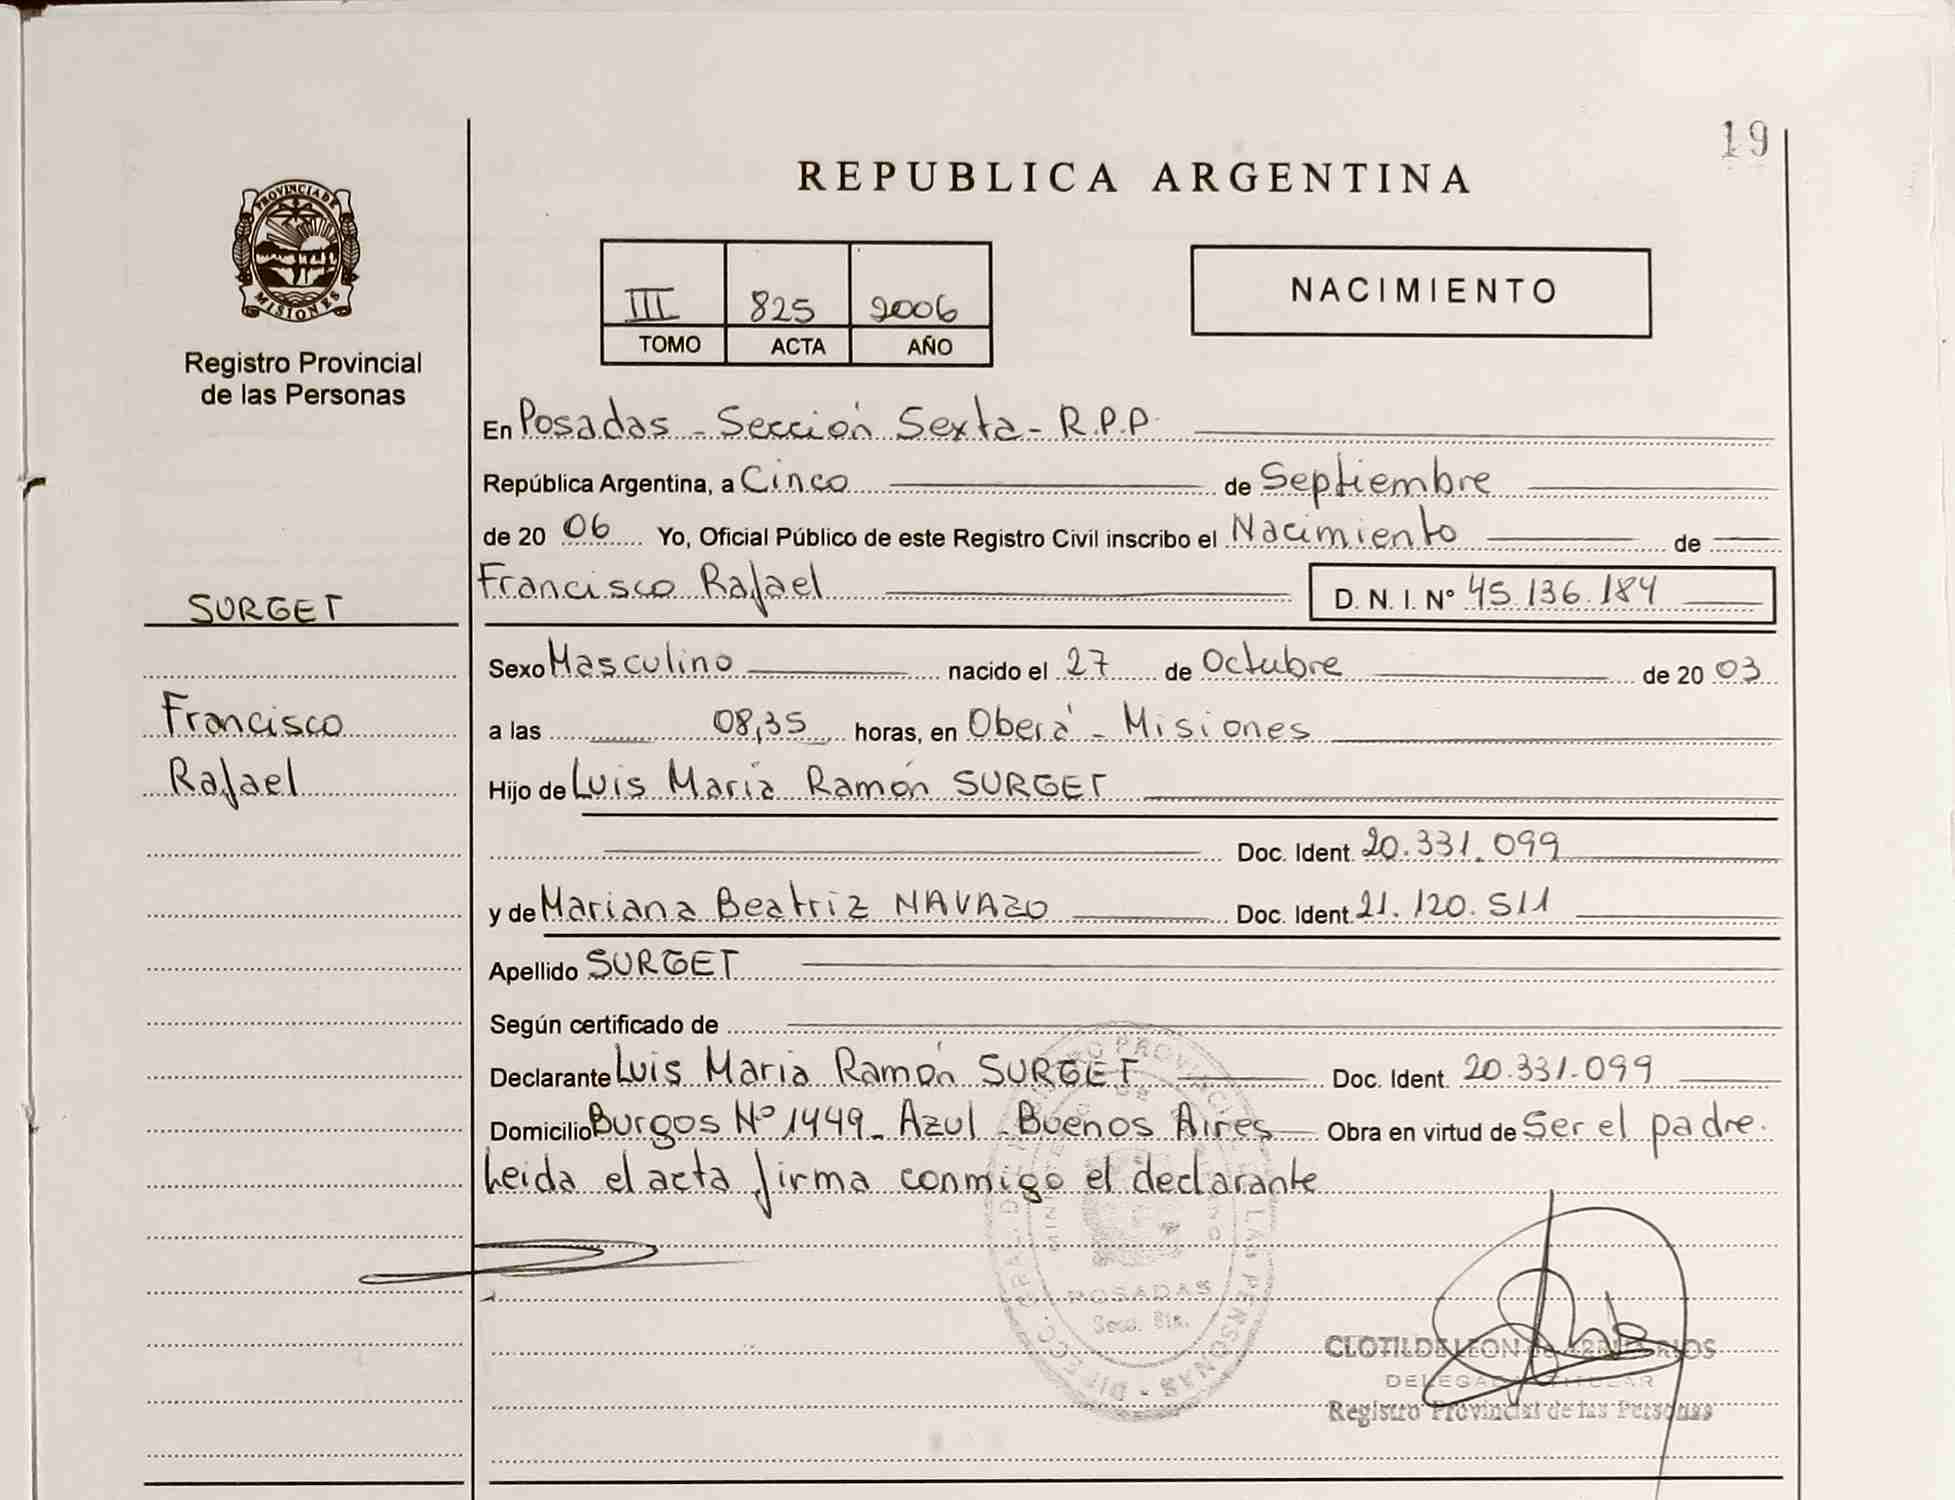 19
REPUBLICA ARGENTINA
PROVINCIA DE
MISIONES
Registro Provincial
de las Personas
III 825 2006
TOMO ACTA AÑO
NACIMIENTO
En Posadas - Sección Sexta - R.P.P.
República Argentina, a Cinco de Septiembre
de 20 06 Yo, Oficial Público de este Registro Civil inscribo el Nacimiento de
Francisco Rafael D. N. I. N° 45.136.184
SURGET
Francisco
Rafael
Sexo Masculino nacido el 27 de Octubre de 20 03
a las 08,35 horas, en Oberá - Misiones
Hijo de Luis María Ramón SURGET
Doc. Ident. 20.331.099
y de Mariana Beatriz NAVAZO Doc. Ident. 21.120.511
Apellido SURGET
Según certificado de
Declarante Luis Maria Ramón SURGET Doc. Ident. 20.331.099
Domicilio Burgos Nº 1449 - Azul - Buenos Aires Obra en virtud de Ser el padre.
Leida el acta firma conmigo el declarante
POSADAS
CLOTILDE LEON de
DELEGADA TITULAR
Registro Provincial de las Personas